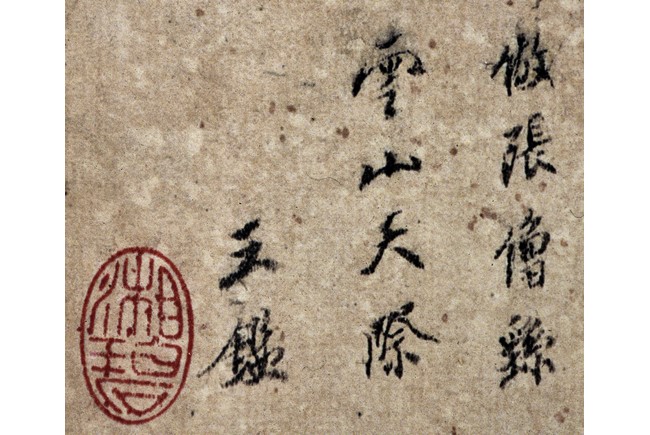 倣張僧繇
雲山天際
王鑑
湘碧